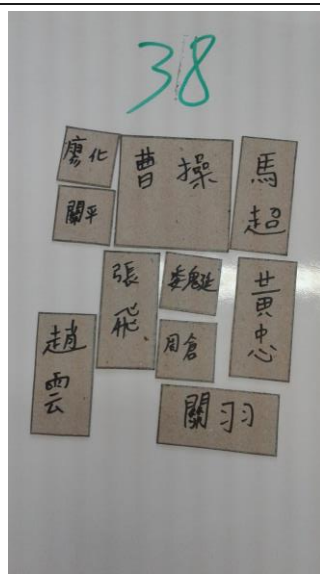 38
廖化
曹操
馬超
關平
張飛
魏延
黃忠
周倉
趙雲
關羽